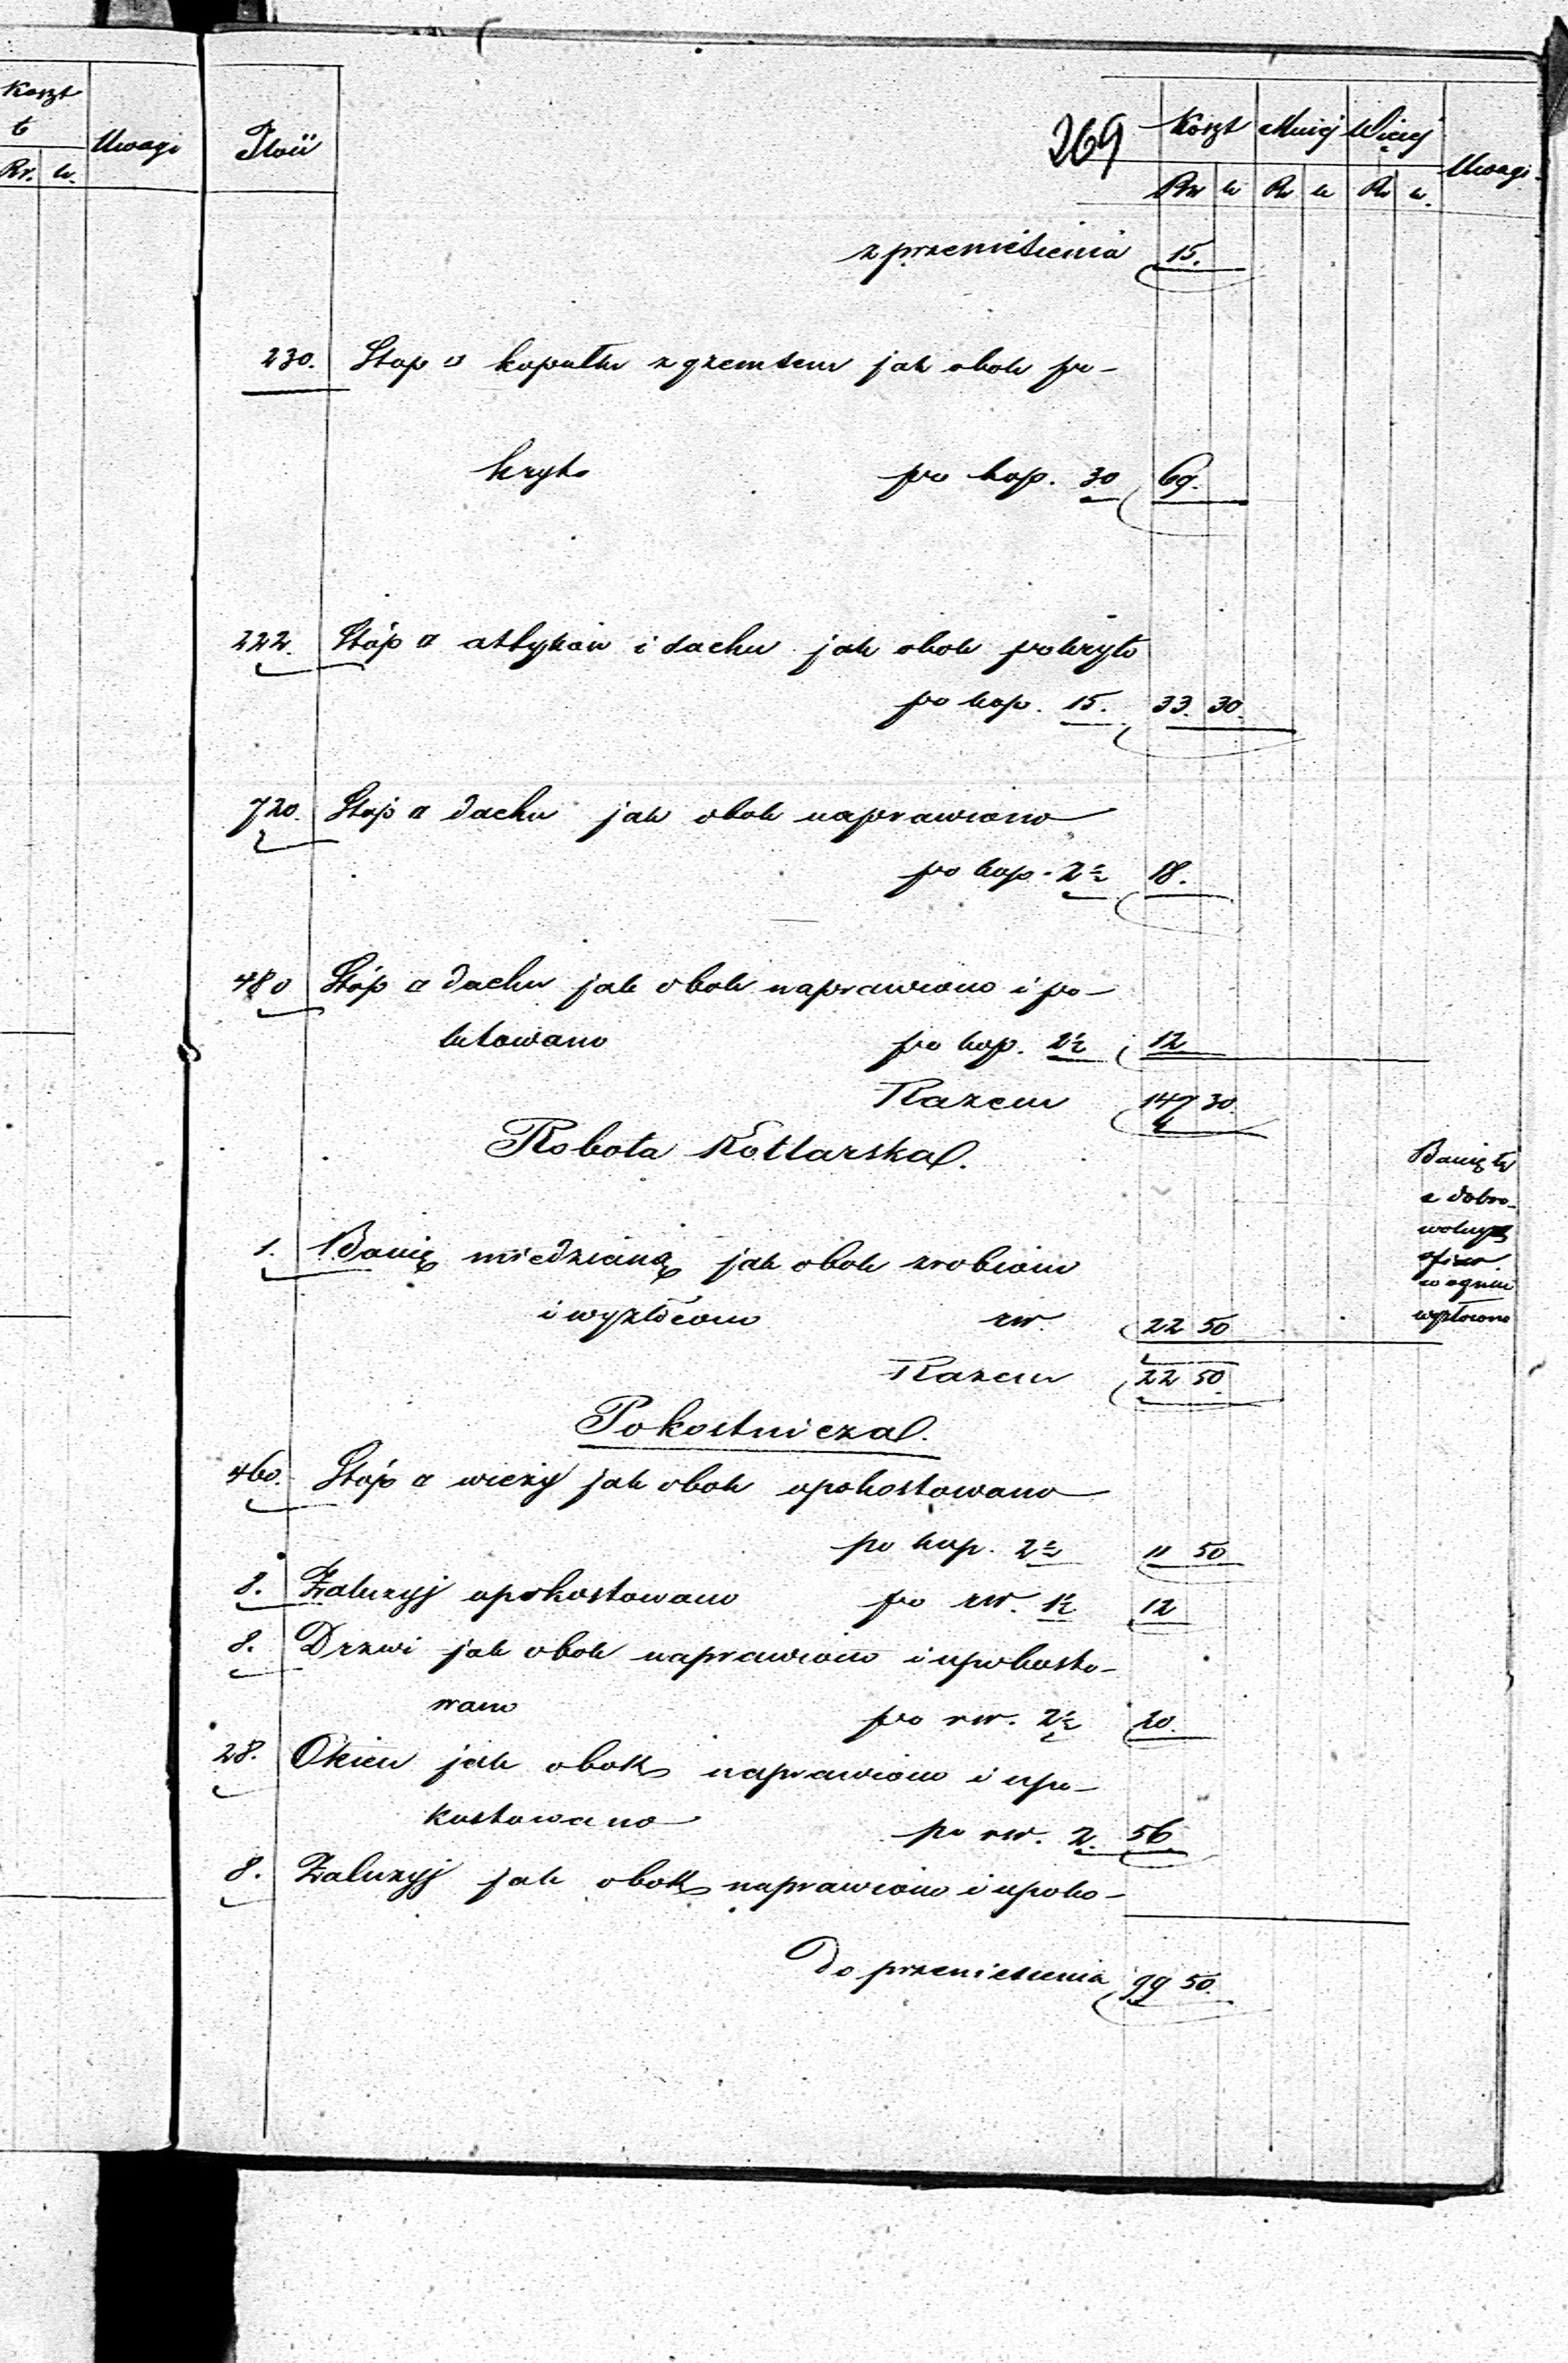 Koszt
t
Uwagi
Rr. k.
269
Ilość
Koszt Mniej Więcej
Uwagi.
Rsr k Rs k Rs k.
z przeniesienia 15.
230. Stóp □ kopułki z gzemsem jak obok po-
kryto po kop. 30 69.
222. Stóp □ attyków i dachu jak obok pokryto
po kop. 15. 33. 30.
720. Stóp □ dachu jak obok naprawiono
po kop. 2½ 18.
480 Stóp □ dachu jak obok naprawiono i po-
lutowano po kop. 2½ 12
Razem 147 30.
Robota Kotlarska.
1. Banię miedzianą jak obok zrobiono
i wyzłocono rsr. 22 50
Razem 22 50
Banię tę
z dobro-
wolnych
ofiar
w ogniu
wyzłocono
Pokostnicza.
460. Stóp □ wieży jak obok upokostowano
po kop. 2½ 11 50
8. Żaluzyj upokostowano po rsr. 1½ 12
8. Drzwi jak obok naprawiono i upokosto-
wano po rsr. 2½ 20.
28. Okien jak obok naprawiono i upo-
kostowano po rsr. 2. 56
8. Żaluzyj jak obok naprawiono i upoko-
Do przeniesienia 99 50.